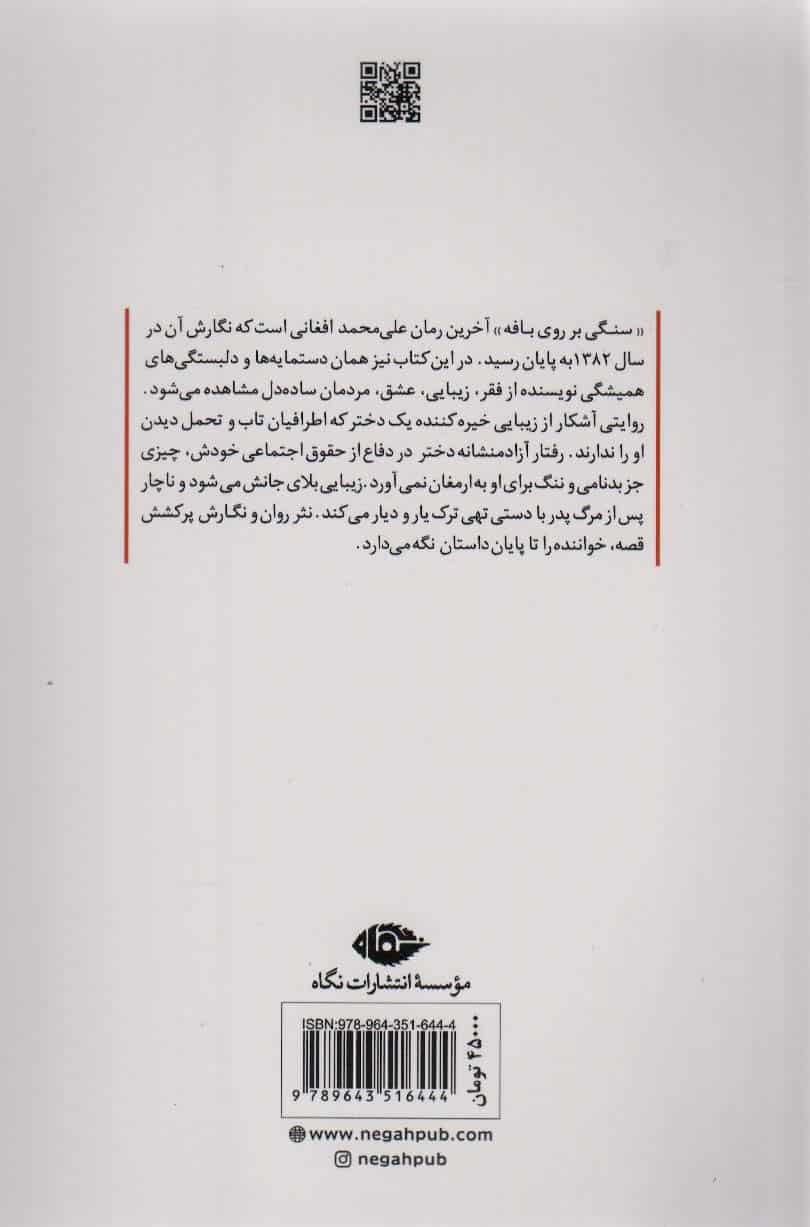 « سنگی بر روی بافه» آخرین رمان علی‌محمد افغانی است که نگارش آن در
سال ۱۳۸۲به پایان رسید. در این کتاب نیز همان دستمایه‌ها و دلبستگی‌های
همیشگی نویسنده از فقر، زیبایی، عشق، مردمان ساده‌دل مشاهده می‌شود.
روایتی آشکار از زیبایی خیره‌کننده یک دختر که اطرافیان تاب و تحمل دیدن
او را ندارند. رفتار آزادمنشانه دختر در دفاع از حقوق اجتماعی خودش، چیزی
جز بدنامی و ننگ برای او به ارمغان نمی‌آورد.زیبایی بلای جانش می‌شود و ناچار
پس از مرگ پدر با دستی تهی ترک یار و دیار می‌کند. نثر روان و نگارش پرکشش
قصه، خواننده را تا پایان داستان نگه می‌دارد.
نگاه
مؤسسهٔ انتشارات نگاه
ISBN:978-964-351-644-4
9 789643 516444
۴۵۰۰۰ تومان
www.negahpub.com
negahpub